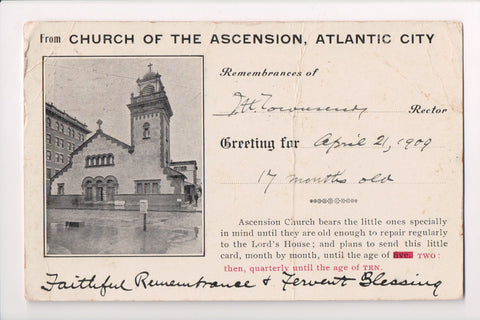 From CHURCH OF THE ASCENSION, ATLANTIC CITY
Remembrances of
JH Townsend, Rector
Greeting for April 21, 1909
17 months old
Ascension Church bears the little ones specially
in mind until they are old enough to repair regularly
to the Lord's House; and plans to send this little
card, month by month, until the age of five. TWO:
then, quarterly until the age of TEN.
Faithful Remembrance & Fervent Blessing